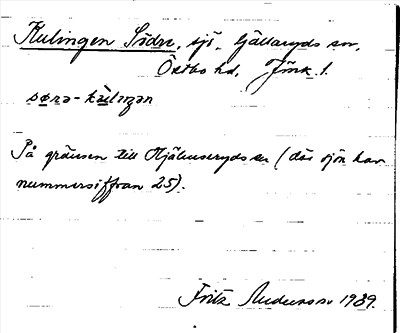 Kulingen Södre, sjö, Gällaryds sn,
Östbo hd, Jönk. l.
søra-kùlıŋən
På gränsen till Hjälmseryds sn (där sjön har
nummersiffran 25).
Fritz Anderson 1939.